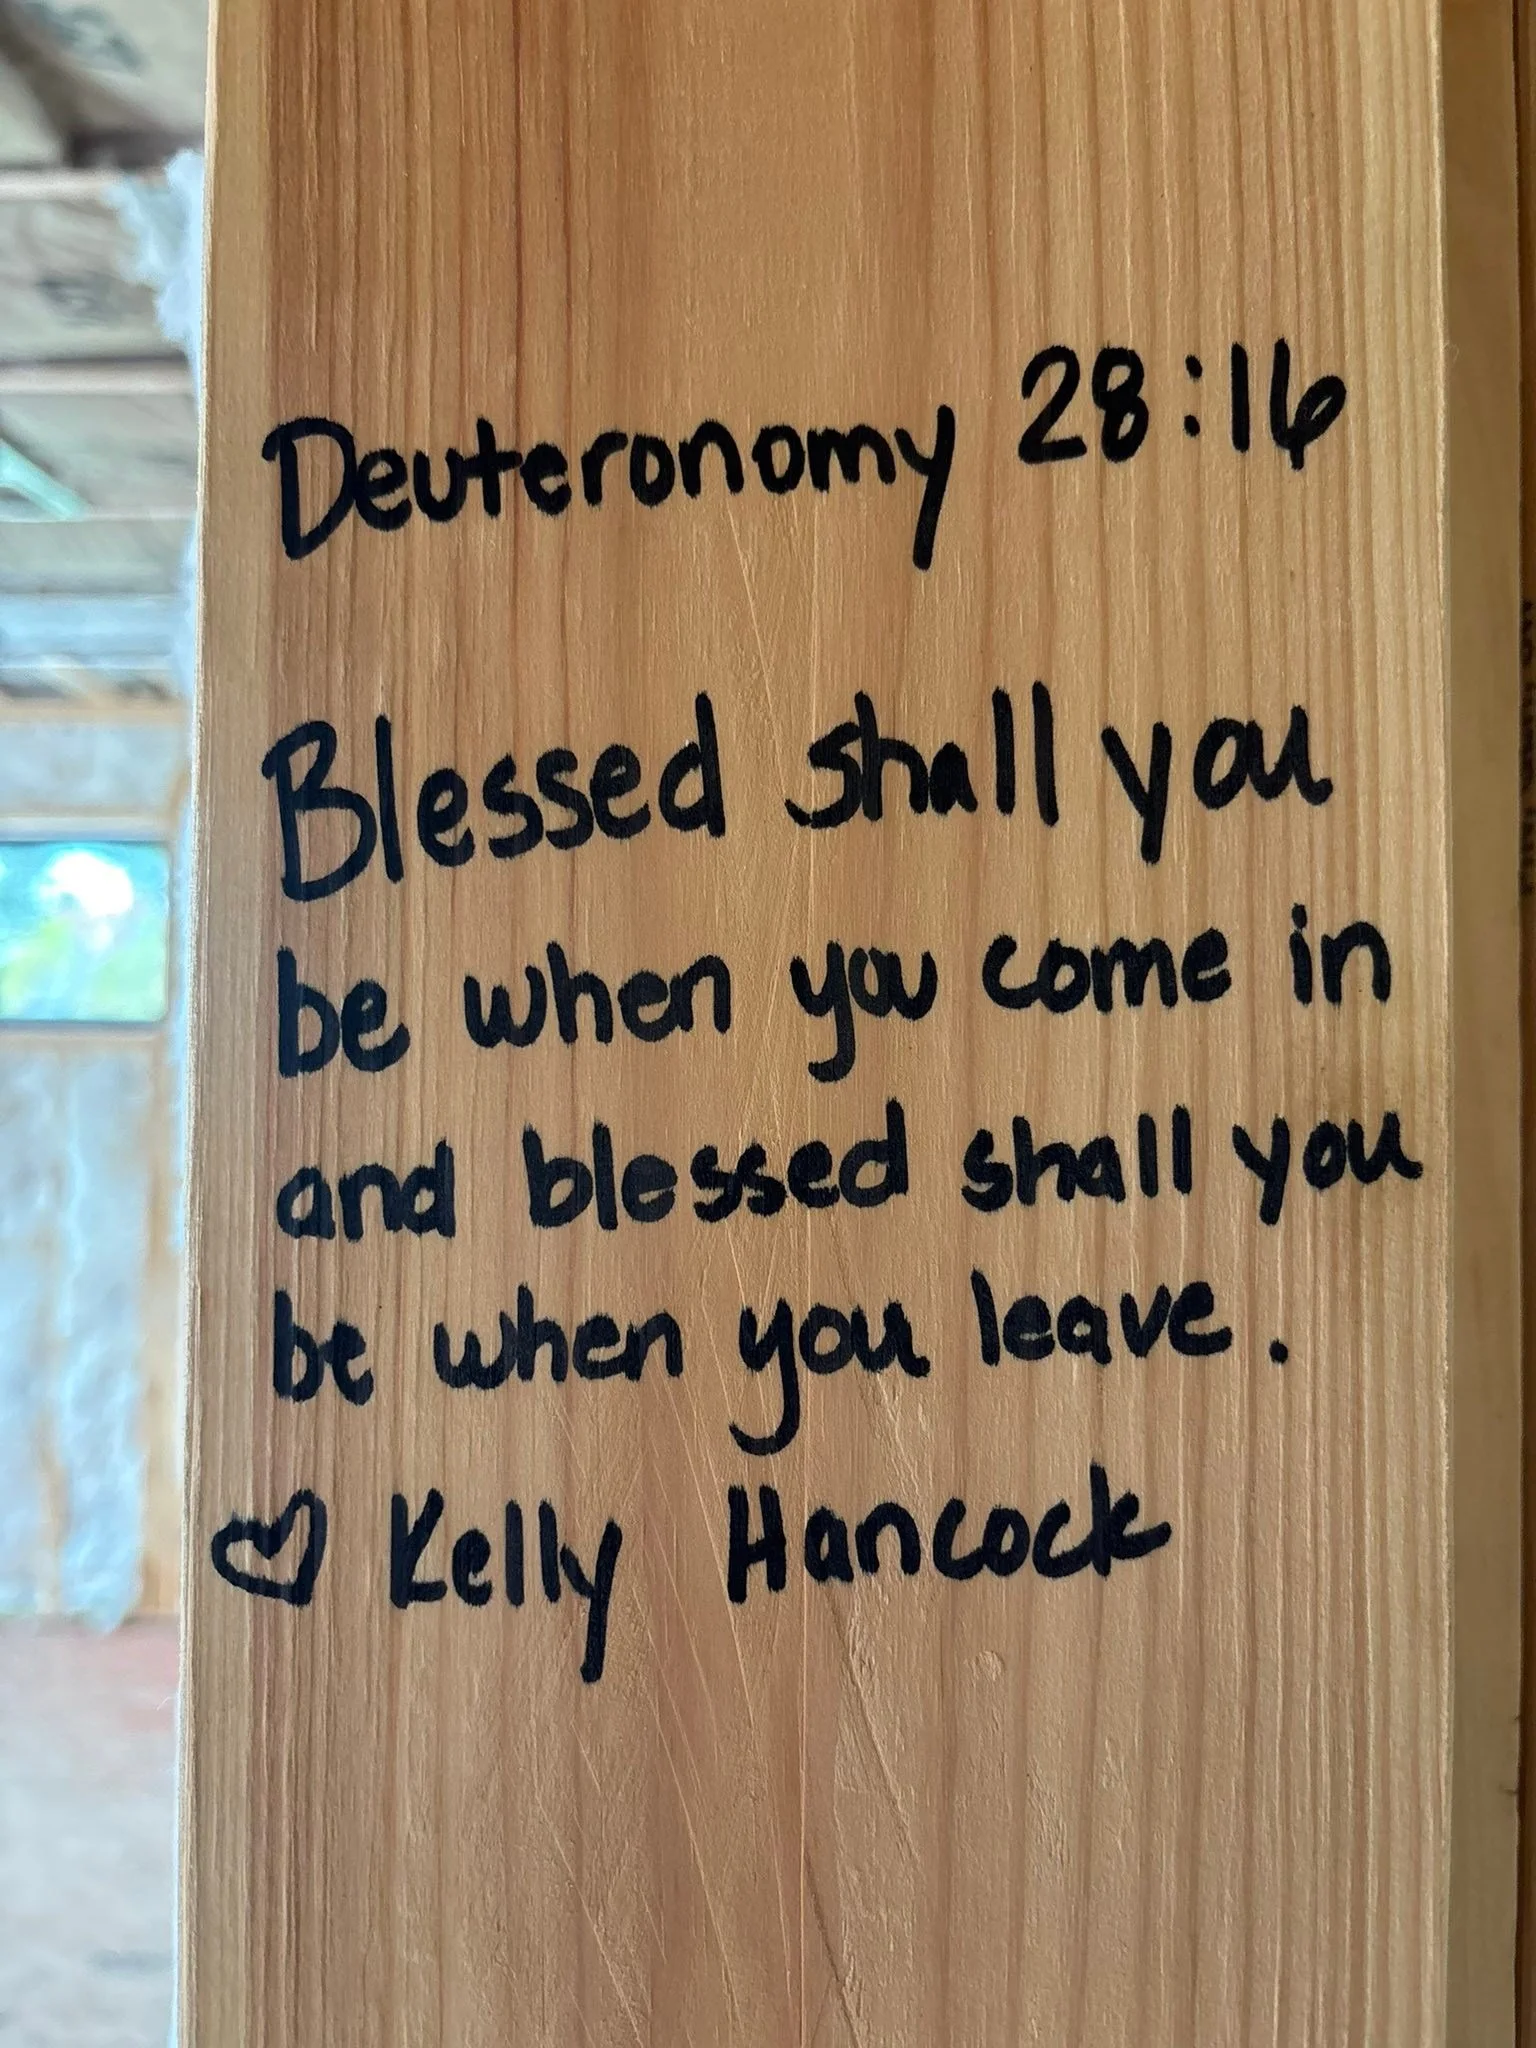 Deuteronomy 28:16
Blessed shall you
be when you come in
and blessed shall you
be when you leave.
♡ Kelly Hancock